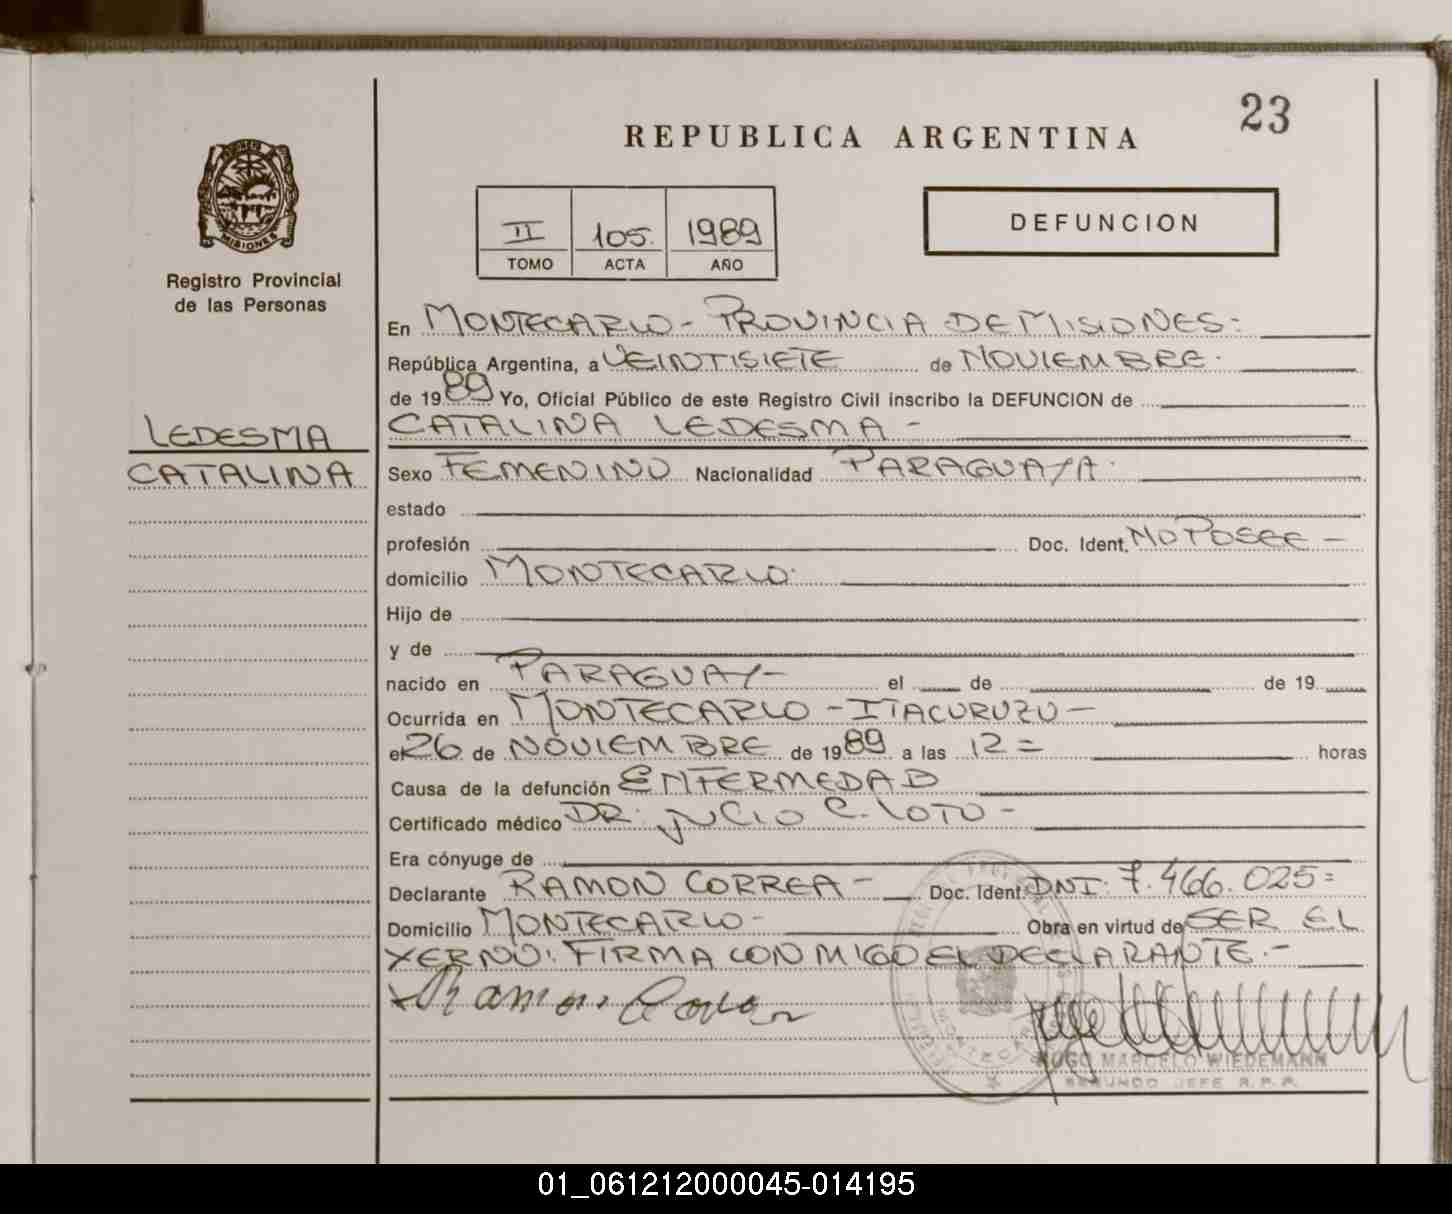 23
REPUBLICA ARGENTINA
II 105. 1989
TOMO ACTA AÑO
DEFUNCION
MISIONES
Registro Provincial
de las Personas
LEDESMA
CATALINA
En MONTECARLO - PROVINCIA DE MISIONES:
República Argentina, a VEINTISIETE de NOVIEMBRE.
de 1989 Yo, Oficial Público de este Registro Civil inscribo la DEFUNCION de
CATALINA LEDESMA -
Sexo FEMENINO Nacionalidad PARAGUAYA.
estado
profesión Doc. Ident. NO POSEE -
domicilio MONTECARLO.
Hijo de
y de
nacido en PARAGUAY - el de de 19
Ocurrida en MONTECARLO - ITACURUZU -
el 26 de NOVIEMBRE de 1989 a las 12 = horas
Causa de la defunción ENFERMEDAD
Certificado médico DR. JULIO C. LOTO -
Era cónyuge de
Declarante RAMON CORREA - Doc. Ident. DNI: 7.466.025=
Domicilio MONTECARLO - Obra en virtud de SER EL
YERNO: FIRMA CONMIGO EL DECLARANTE. -
Ramon Correa
HUGO MARCELO WIEDEMANN
SEGUNDO JEFE R.P.P.
01_061212000045-014195